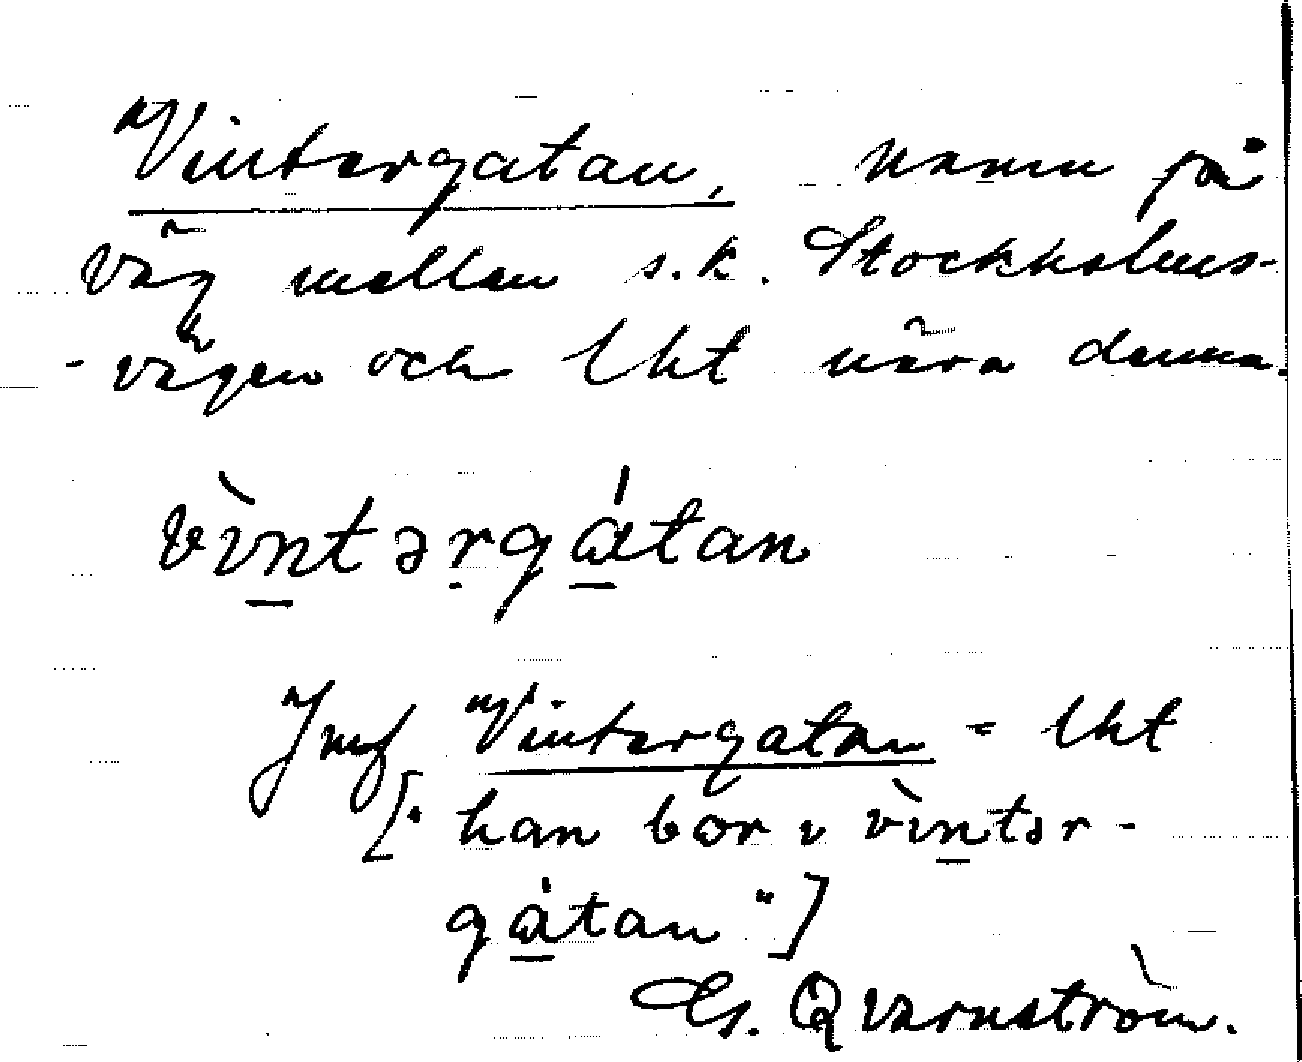 "Vintergatan, namn på
väg mellan s.k. Stockholms-
-vägen och Ukt nära denna.
vìntərgátan
Jmf "Vintergatan = Ukt
[: han bor i vìntər-
gátan"]
Gs. Qvarnström.